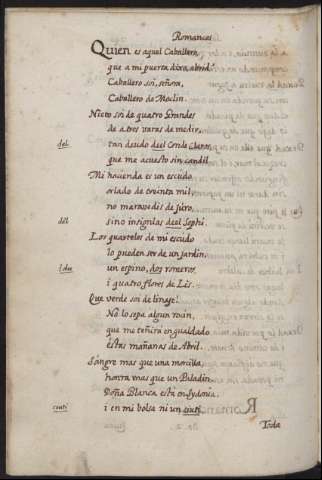 Romances
Quien es aquel Caballero
que a mi puerta dixo, abrid?
Caballero soi, señora,
Caballero de Moclin.
Nieto soi de quatro Grandes
de a tres varas de medir,
del tan deudo deel Conde Claros,
que me acuesto sin candil.
Mi hacienda es un escudo
orlado de treinta mil,
no maravedis de juro,
dél sino insignias deel Sophi.
Los quarteles de mi escudo
lo pueden ser de un jardin,
un espino, dos romeros,
i quatro flores de Lis.
Que verde soi de linage!
No lo sepa algun rocin,
que me teñirá en gualdado
estas mañanas de Abril.
Sangre mas que una morcilla,
honra mas que un Paladin,
Doña Blanca està en Sydonia,
ceuti i en mi bolsa ni un ceuti.
Toda